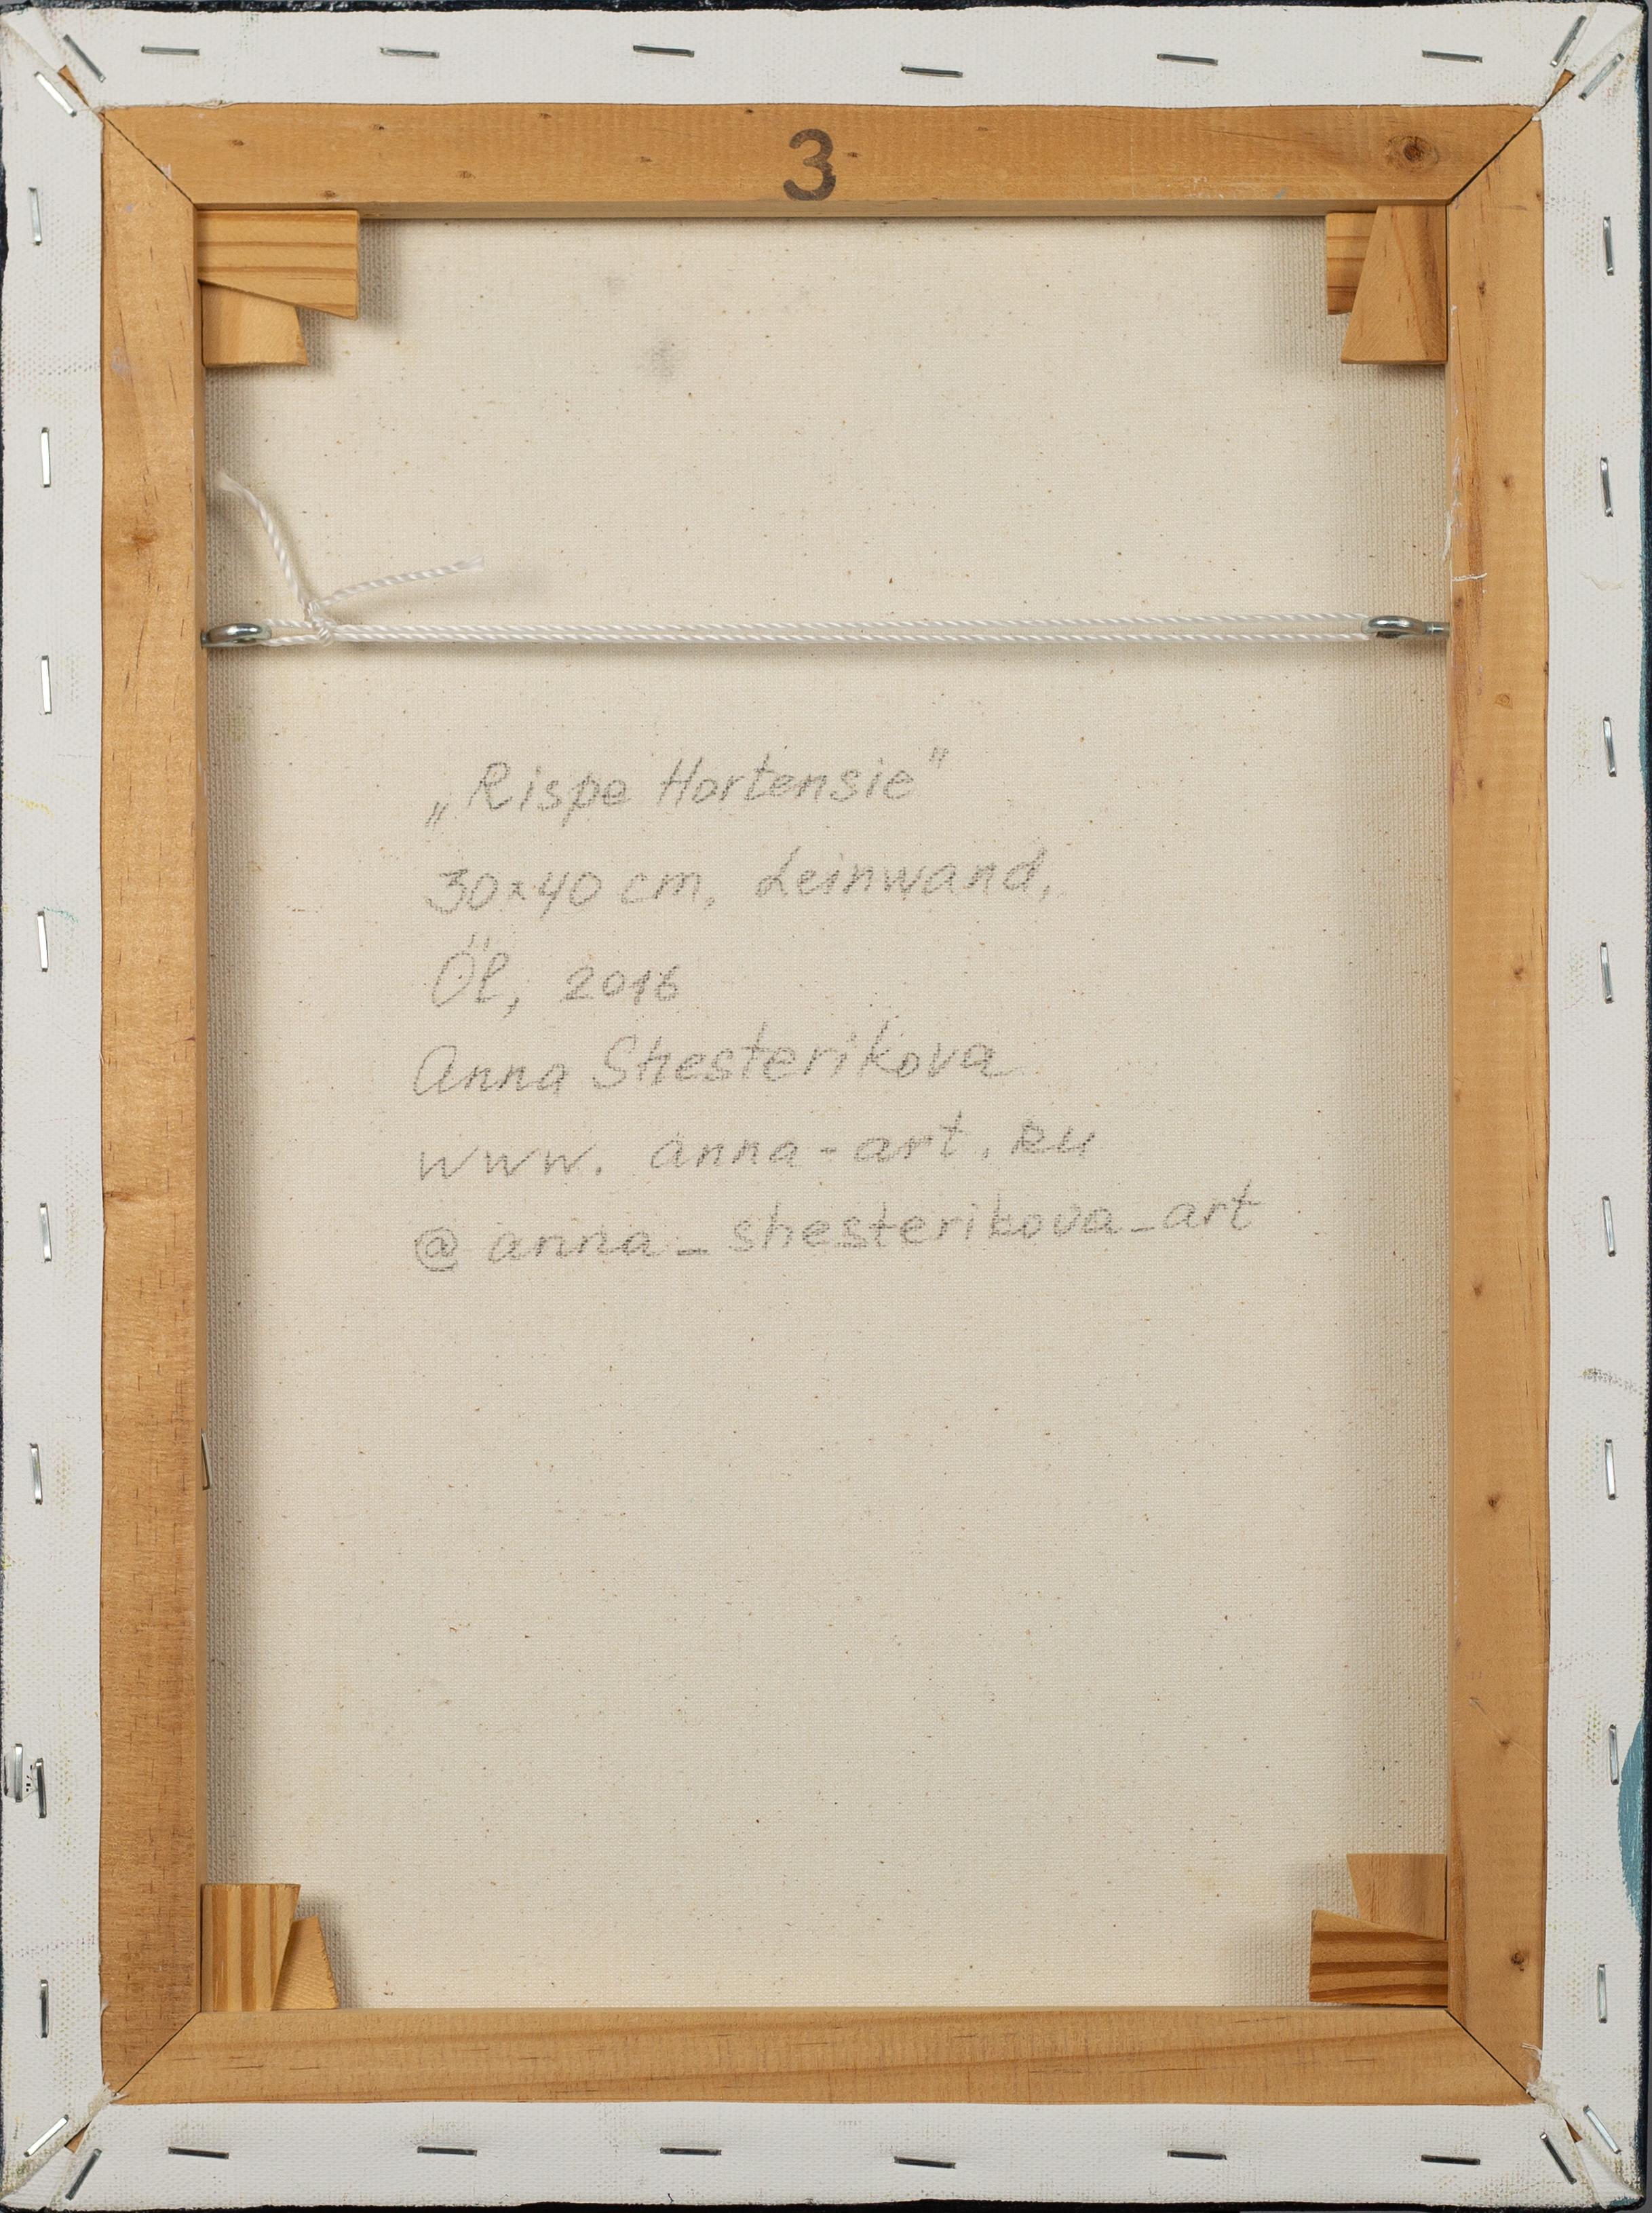 3
„Rispe Hortensie"
30×40 cm, Leinwand,
Öl, 2016
Anna Shesterikova
www. anna-art.ru
@ anna_shesterikova_art